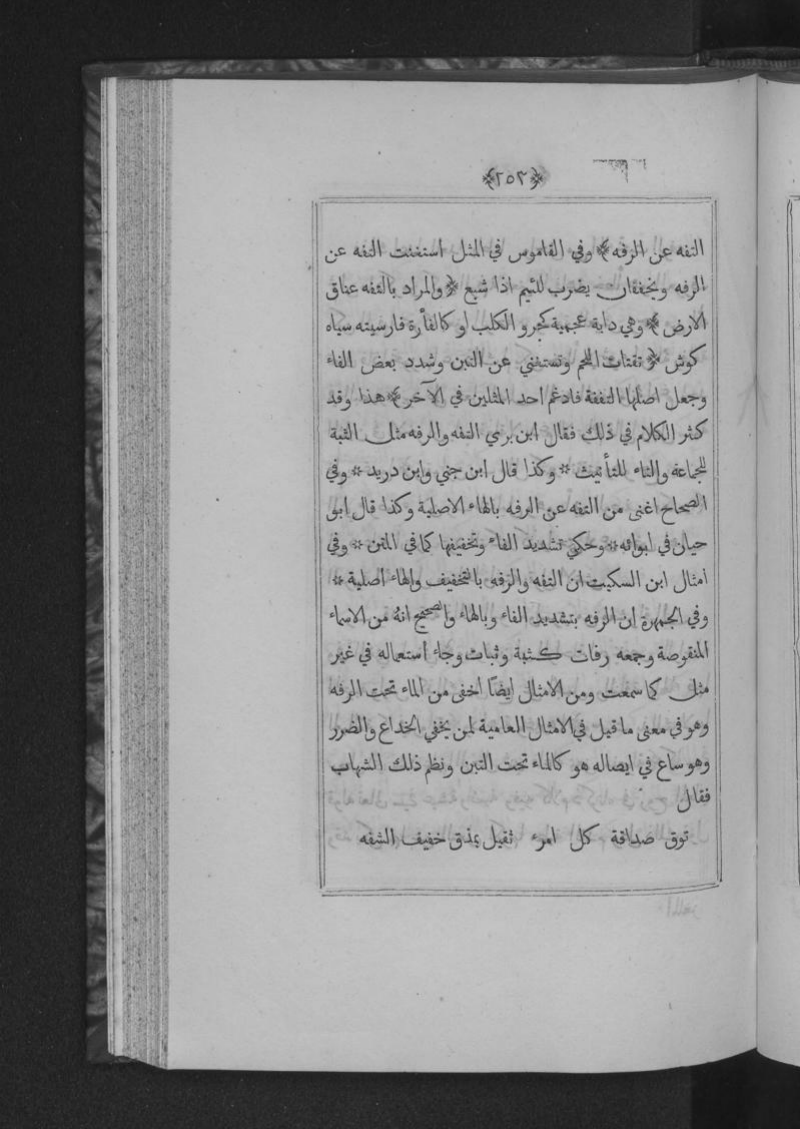 ﴿٢٥٣﴾
التفه عن الرفه ﴾ وفي القاموس في المثل استغنت التفه عن
الرفه ويخففان يضرب للئيم اذا شبع ﴿ والمراد بالتفه عناق
الارض ﴾ وهي دابة عجمية كجرو الكلب او كالفأرة فارسيته سياه
كوش ﴿ تقتات اللحم وتستغني عن التبن وشدد بعض الفاء
وجعل اصلها التففة فادغم احد المثلين في الآخر ﴾ هذا وقد
كثر الكلام في ذلك فقال ابن بري التفه والرفه مثل الثبة
للجماعة والتاء للتأنيث * وكذا قال ابن جني وابن دريد * وفي
الصحاح اغنى من التفه عن الرفه بالهاء الاصلية وكذا قال ابو
حيان في ابوابه * وحكي تشديد الفاء وتخفيفها كما في المتن * وفي
امثال ابن السكيت ان التفه والرفه بالتخفيف والهاء اصلية *
وفي الجمهرة ان الرفه بتشديد الفاء وبالهاء والصحيح انهُ من الاسماء
المنقوصة وجمعه رفات كثبة وثبات وجاء استعماله في غير
مثل كما سمعت ومن الامثال ايضًا اخفى من الماء تحت الرفه
وهو في معنى ما قيل في الامثال العامية لمن يخفي الخداع والضرر
وهو ساع في ايصاله هو كالماء تحت التبن ونظم ذلك الشهاب
فقال
توق صداقة كل امرء ثقيل بمذق خفيف الشفه